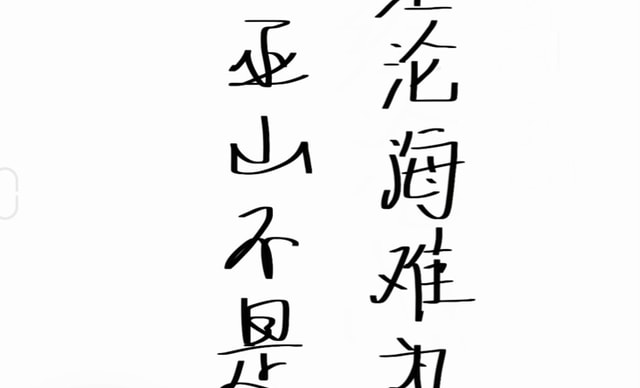 沧海难
巫山不是